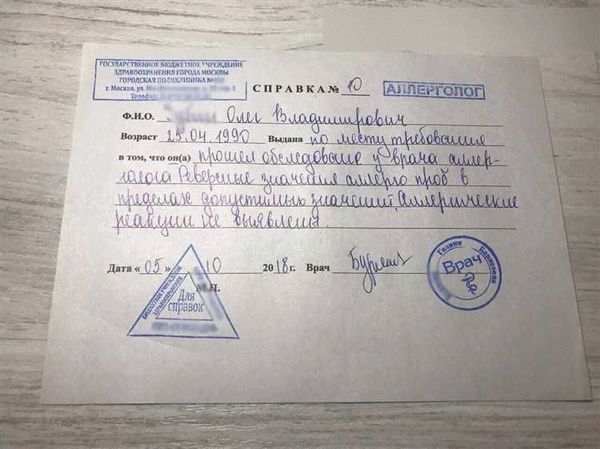 ГОСУДАРСТВЕННОЕ БЮДЖЕТНОЕ УЧРЕЖДЕНИЕ
ЗДРАВООХРАНЕНИЯ ГОРОДА МОСКВЫ
ГОРОДСКАЯ ПОЛИКЛИНИКА №
г. Москва, ул.
Телефон
СПРАВКА № 10 АЛЛЕРГОЛОГ
Ф.И.О. Олег Владимирович
Возраст 25.04.1990 Выдана по месту требования
в том, что он(а) прошел обследование у врача аллер-
голога значения аллерго проб в
пределах допустимых значений. Аллергические
реакции не выявлены.
Дата «05» 10 2018г. Врач
М.П.
БЮДЖЕТНОЕ УЧРЕЖДЕНИЕ
ЗДРАВООХРАНЕНИЯ
Для
справок
Галина Борисовна
Врач